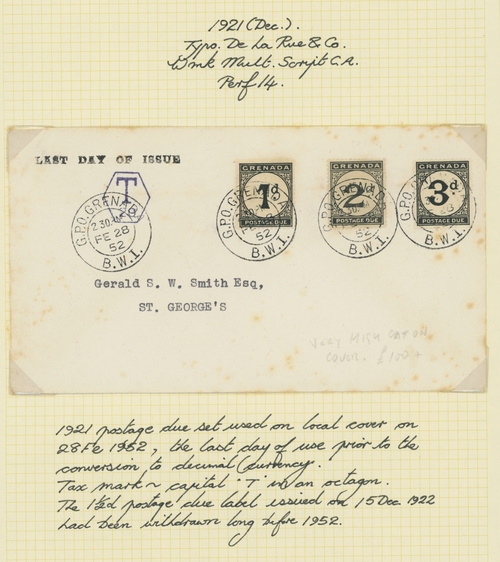 1921 (Dec.).
Typo. De La Rue & Co.
Wmk Mult. Script C.A.
Perf 14.
LAST DAY OF ISSUE
T
G.P.O. GRENADA
2 30. PM
FE 28
52
B.W.I.
GRENADA
1d
POSTAGE DUE
G.P.O. GRENADA
52
B.W.I.
GRENADA
2d
POSTAGE DUE
G.P.O. GRENADA
52
B.W.I.
GRENADA
3d.
POSTAGE DUE
G.P.O. GRENADA
52
B.W.I.
Gerald S. W. Smith Esq,
ST. GEORGE'S
VERY HIGH CAT ON
COVER. £100+
1921 postage due set used on local cover on
28 Fe 1952, the last day of use prior to the
conversion to decimal currency.
Tax mark ~ capital 'T' in an octagon.
The 1½d postage due label issued on 15 Dec 1922
had been withdrawn long before 1952.